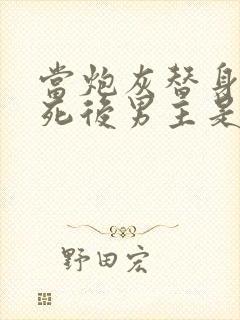 當炮灰替身
死後男主是
野田宏